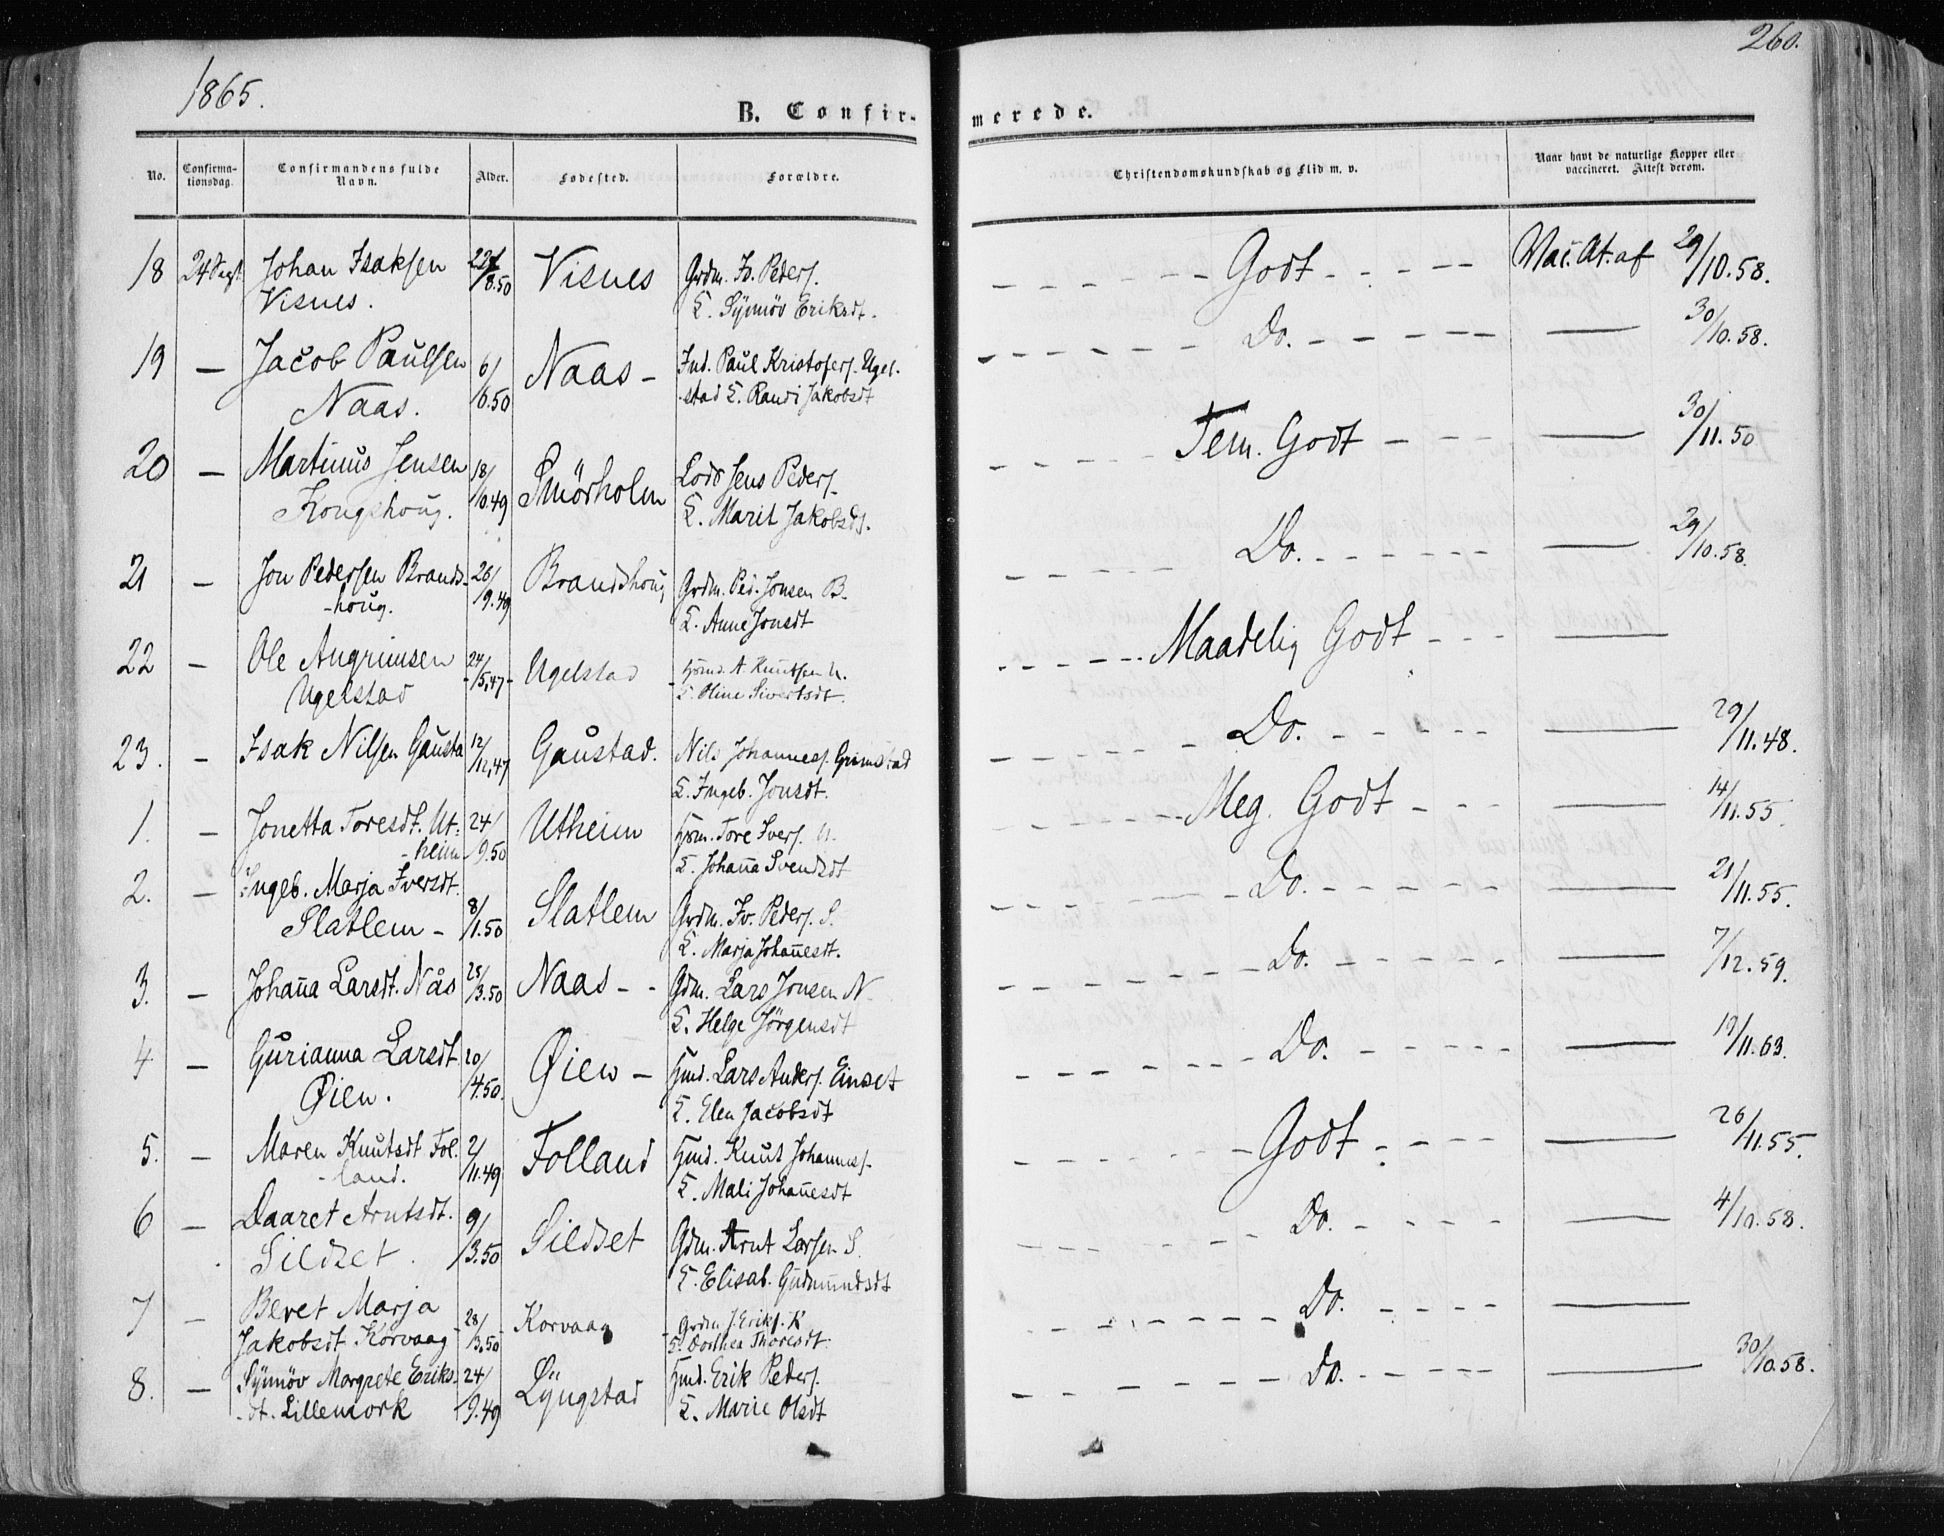 1865.
260.
B. Confir-
merede.
No.
Confirma-
tionsdag.
Confirmandens fulde
Navn.
Alder.
Fødested.
Forældre.
Christendomskundskab og Flid m. v.
Naar havt de naturlige Kopper eller
vaccineret. Attest derom.
18 24 Sept Johan Isaksen 22/8.50 Visnes Grdm. Iv. Peders. Godt Vac. At. af 29/10.58.
Visnes. E. Synnöv Eriksdt.
19 — Jacob Paulsen 6/6.50 Naas — Ind. Paul Kristofers. Ugel- Do. — 30/10.58.
Naas. stad E. Randi Jakobsdt
20 — Martinus Jensen 18/10.49 Smörholm Lods Jens Peders. Tem. Godt — 30/11.50
Kongshoug. E. Marit Jakobsdt.
21 — Jon Pedersen Brands- 26/9.49 Brandshoug Grdm. Ped. Jonsen B. Do. — 29/10.58.
-houg. E. Anne Jonsdt
22 — Ole Angrimsen 24/5.47 Ugelstad Hsmd. A. Knutsen U. Maadelig Godt —
Ugelstad E. Oline Sivertsdt.
23. — Isak Nilsen Gausta 12/12.47 Gaustad. Nils Johanness. Grimstad Do. — 29/11.48.
E. Ingeb. Jonsdt.
1. — Jonetta Toresdt. Ut- 24/9.50 Utheim Hsm. Tore Ivers. U. Meg. Godt — 14/11.55.
-heim E. Johana Svendsdt
2. — Ingeb. Marja Iversdt. 8/1.50 Slatlem Grdm. Iv. Peders. S. Do. — 21/11.55.
Slatlem — E. Marja Johanesdt.
3. — Johana Larsdt. Nås 25/3.50 Naas — Gdm. Lars Jonsen N. Do. — 7/12.59.
E. Helge Jörgensdt
4 — Gurianna Larsdt. 20/4.50. Øien — Hmd. Lars Anders. Einset Do. — 19/11.63.
Øien. E. Elen Jacobsdt
5. — Maren Knutsdt Fol- 2/11.49 Folland Hmd. Knut Johanness. Godt — 26/11.55.
-land. E. Mali Johanesdt
6 — Daaret Arntsdt. 9/3.50 Sildset Gdm. Arnt Larsen S. Do. — 4/10.58.
Sildset. E. Elisab. Gudmundsdt
7 — Beret Marja 28/3.50 Korvaag Grdm J. Eriks. K Do. —
Jakobsdt Korvaag E. Dorthea Thoresdt.
8. — Synnöv Margrete Eriks- 24/9.49 Lyngstad Hmd. Erik Peders. Do. — 30/10.58.
-dt. Lillemork E. Marie Olsdt